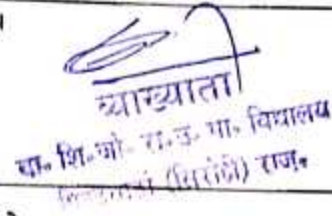 व्याख्याता
बा. शि. जो. रा. उ. मा. विद्यालय
(सिरोही) राज.